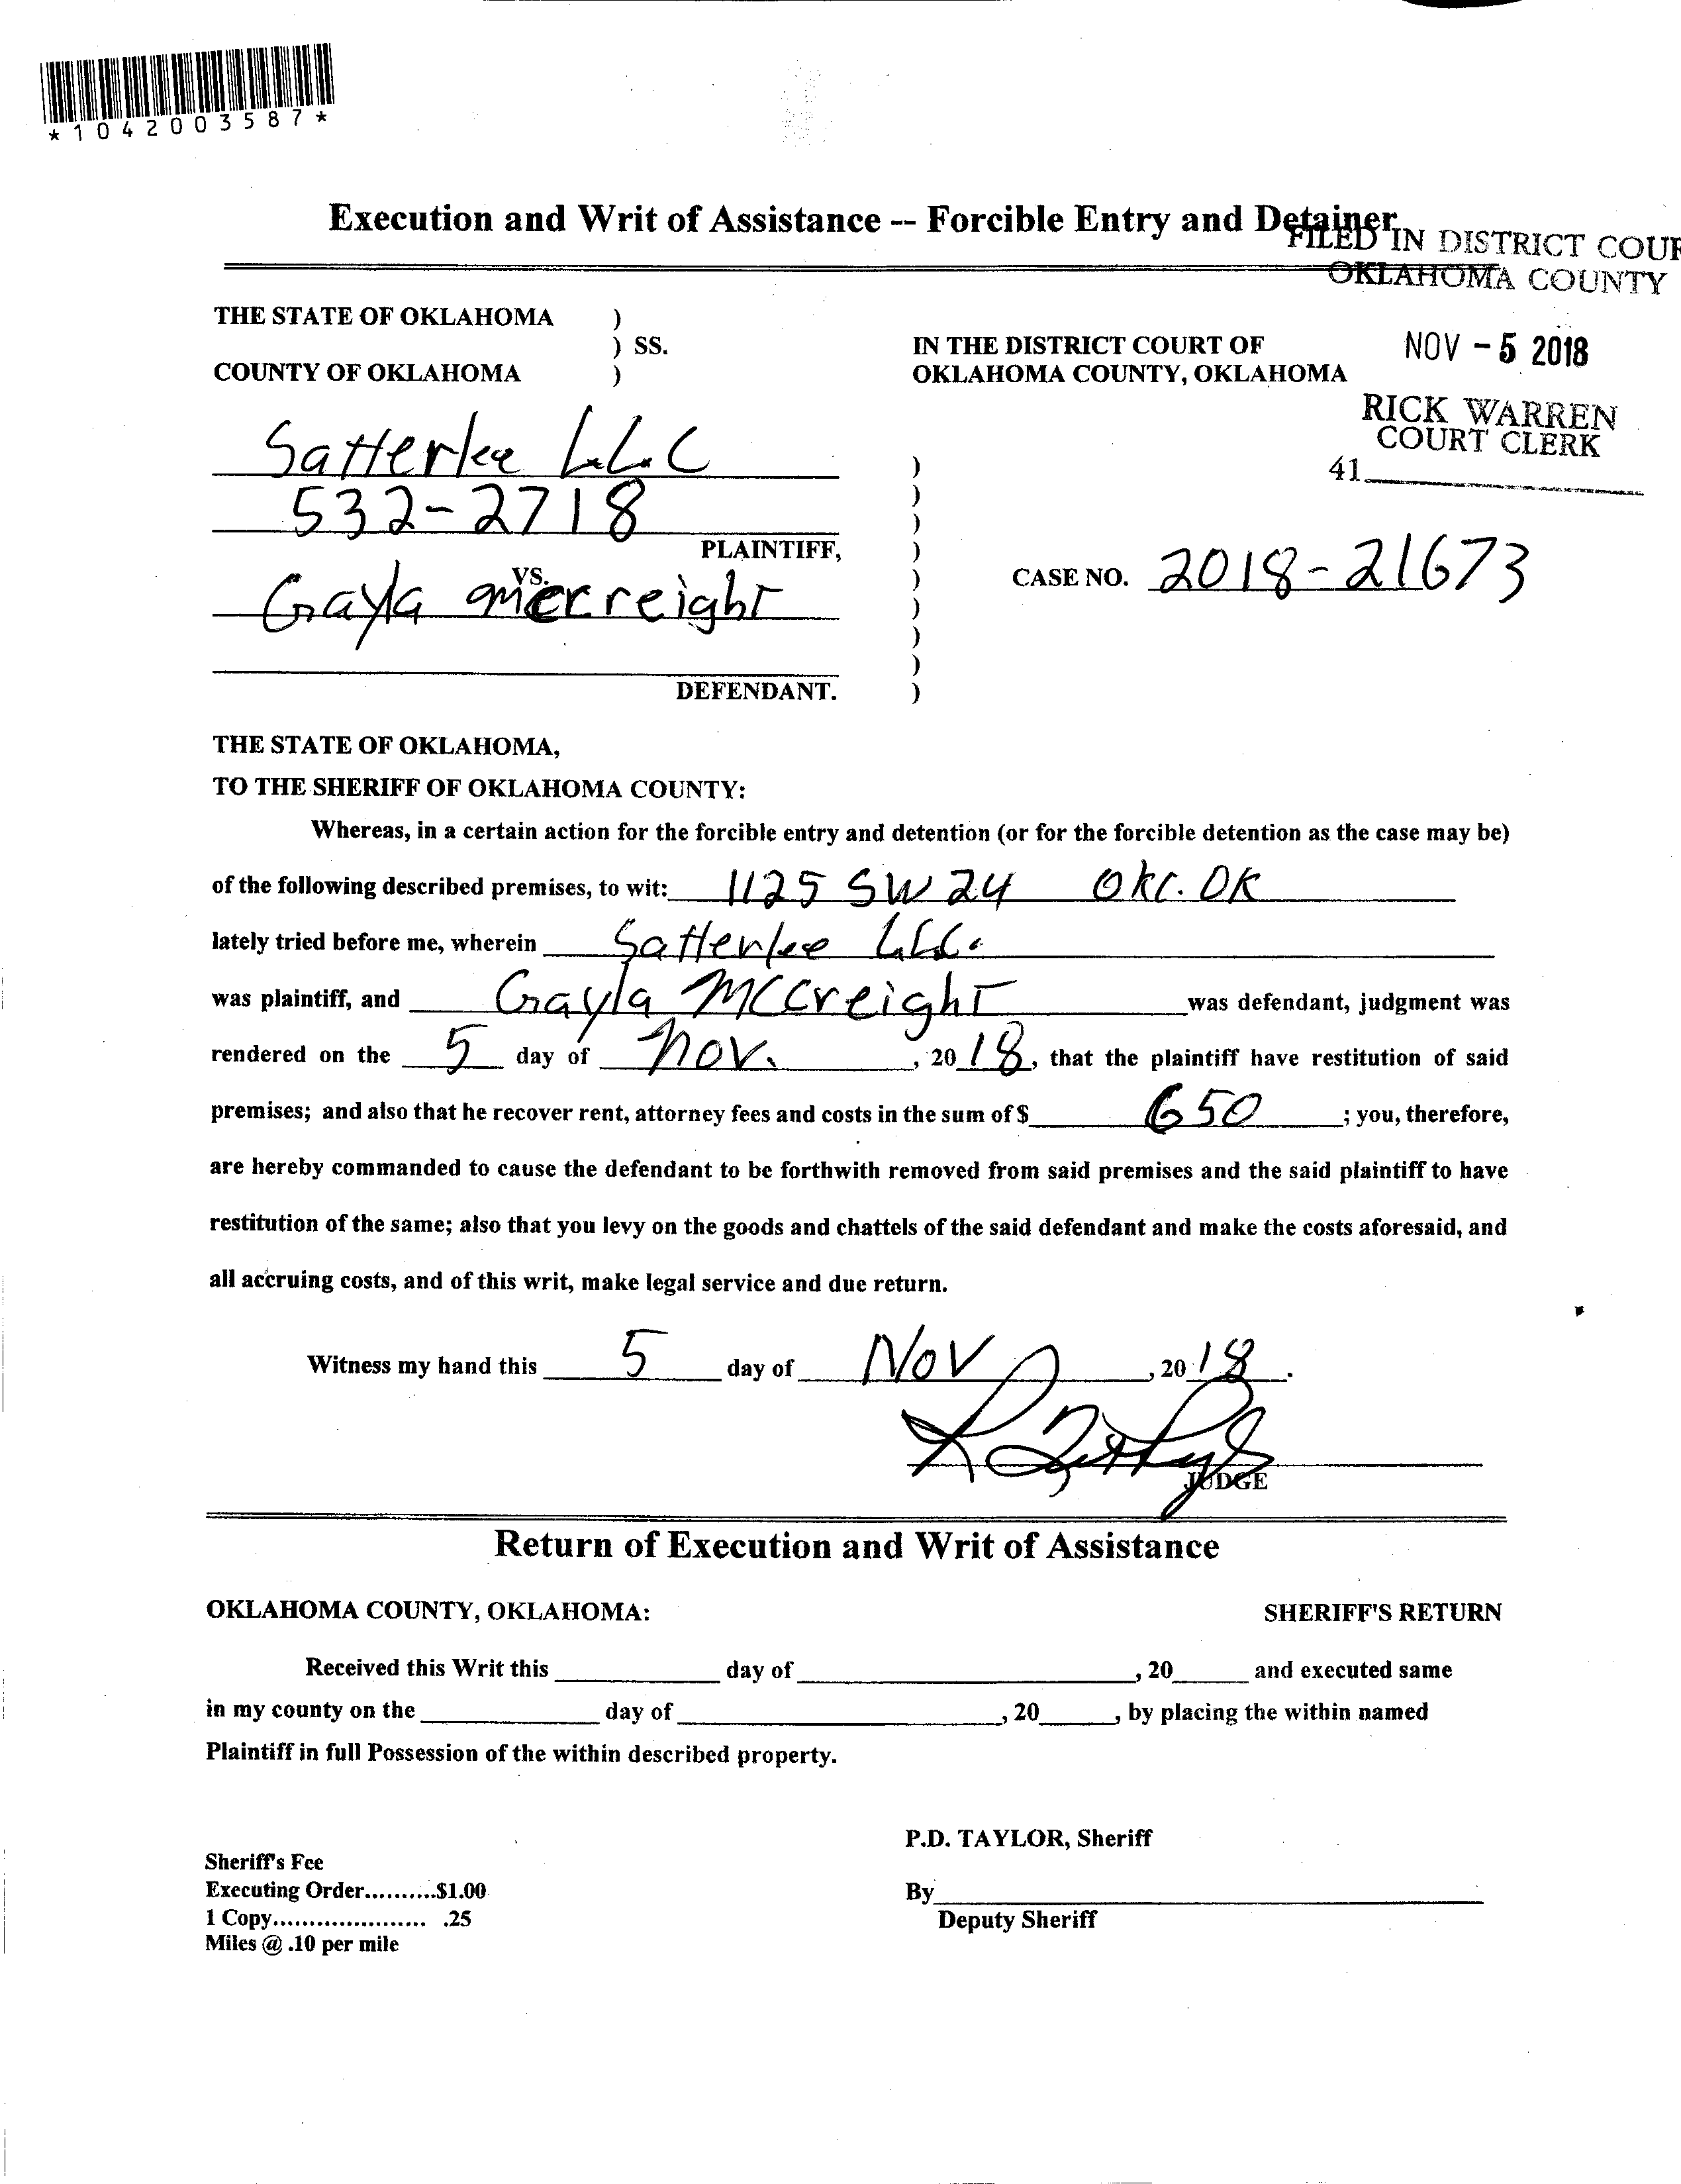 *1042003587*
Execution and Writ of Assistance -- Forcible Entry and Detainer
FILED IN DISTRICT COUR
OKLAHOMA COUNTY
THE STATE OF OKLAHOMA )
) SS.
COUNTY OF OKLAHOMA )
IN THE DISTRICT COURT OF
OKLAHOMA COUNTY, OKLAHOMA
NOV - 5 2018
RICK WARREN
COURT CLERK
41
Satterlee L.L.C
532-2718
PLAINTIFF,
VS.
Gayla Mccreight
DEFENDANT.
)
)
)
)
)
)
)
)
)
CASE NO. 2018-21673
THE STATE OF OKLAHOMA,
TO THE SHERIFF OF OKLAHOMA COUNTY:
Whereas, in a certain action for the forcible entry and detention (or for the forcible detention as the case may be)
of the following described premises, to wit: 1125 SW 24 OKC. OK
lately tried before me, wherein Satterlee LLC.
was plaintiff, and Gayla MCCreight was defendant, judgment was
rendered on the 5 day of Nov. , 20 18, that the plaintiff have restitution of said
premises; and also that he recover rent, attorney fees and costs in the sum of $ 650 ; you, therefore,
are hereby commanded to cause the defendant to be forthwith removed from said premises and the said plaintiff to have
restitution of the same; also that you levy on the goods and chattels of the said defendant and make the costs aforesaid, and
all accruing costs, and of this writ, make legal service and due return.
Witness my hand this 5 day of Nov , 20 18.
JUDGE
Return of Execution and Writ of Assistance
OKLAHOMA COUNTY, OKLAHOMA:
SHERIFF'S RETURN
Received this Writ this day of , 20 and executed same
in my county on the day of , 20 , by placing the within named
Plaintiff in full Possession of the within described property.
P.D. TAYLOR, Sheriff
Sheriff's Fee
Executing Order..........$1.00
1 Copy..................... .25
Miles @ .10 per mile
By
Deputy Sheriff